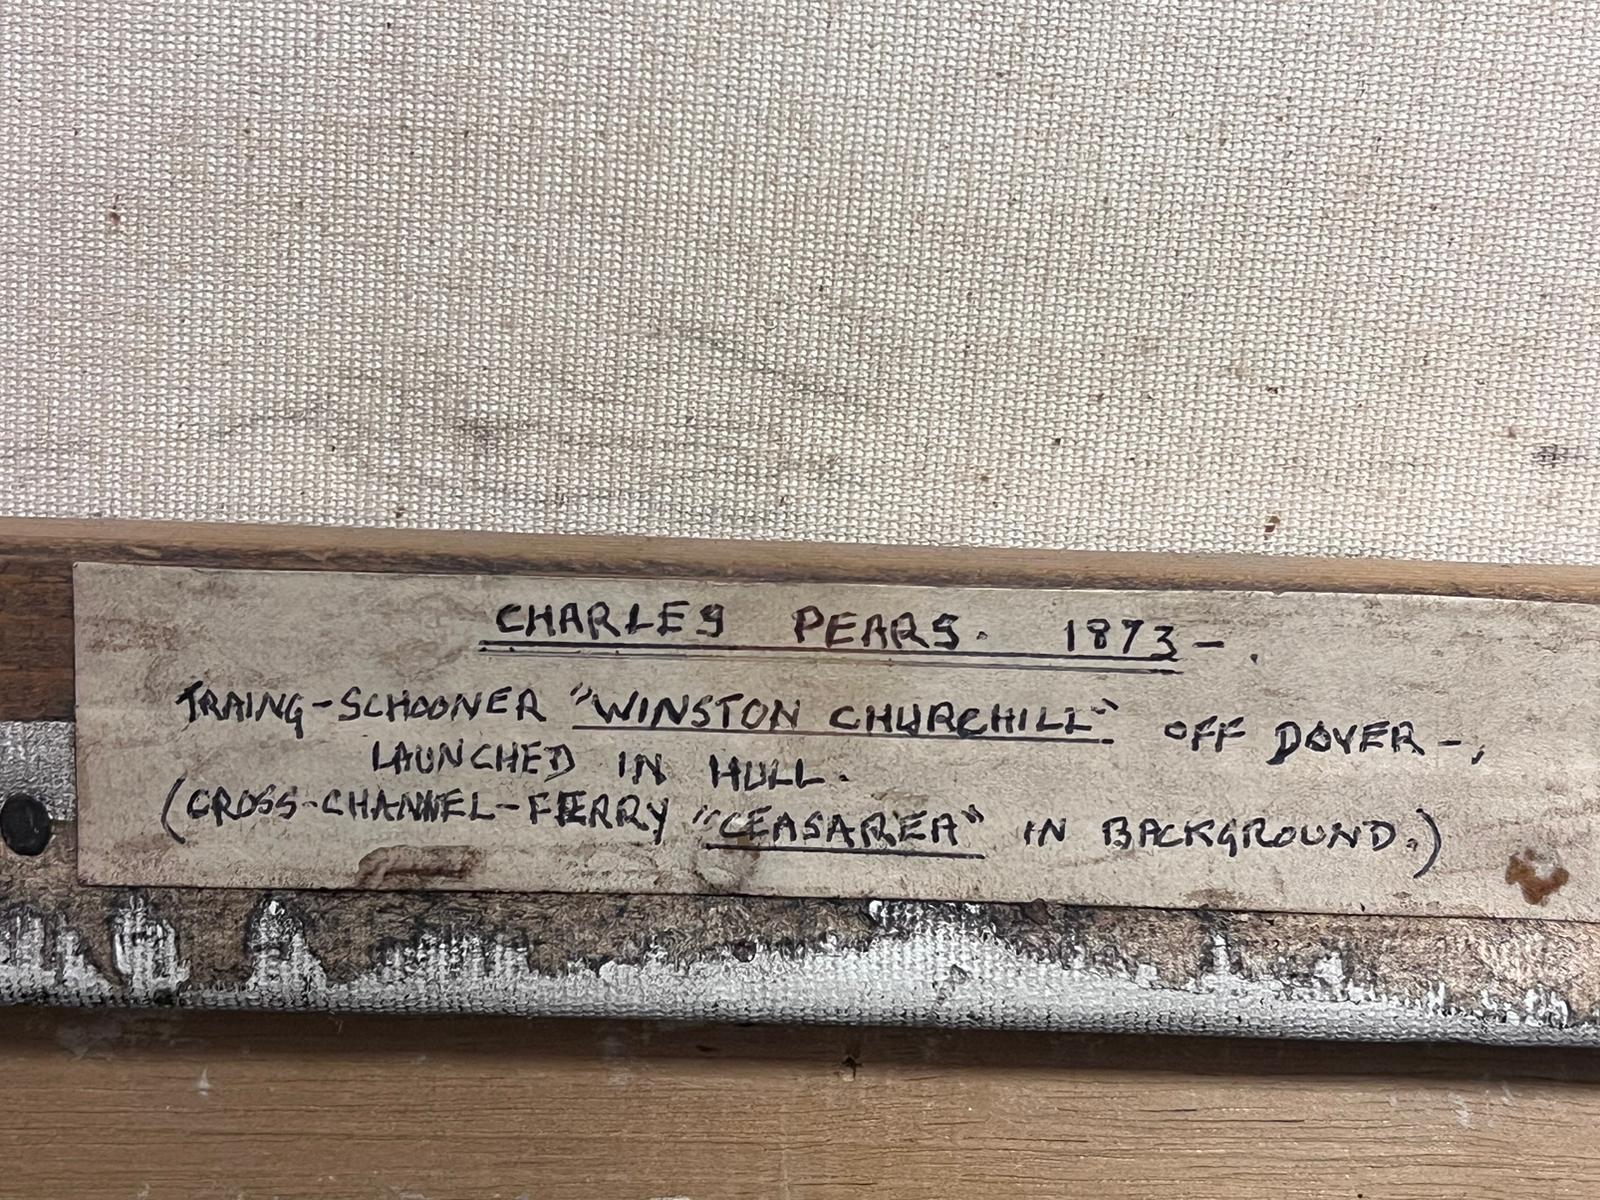 CHARLES PEARS. 1873-.
TRAING-SCHOONER "WINSTON CHURCHILL" OFF DOVER-,
LAUNCHED IN HULL.
(CROSS-CHANNEL-FERRY "CEASAREA" IN BACKGROUND.)